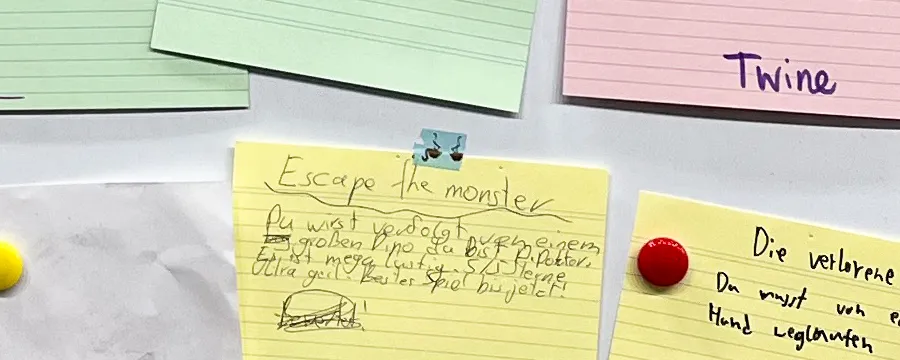 Twine
Escape the monster
Du wirst verfolgt von einem
großen Dino du bist Dipoktor.
Er ist mega lustig. 5/5 Sterne
Ultra geil Bestes Spiel bis jetzt!
Die verlorene
Du musst von
Hund weglaufen